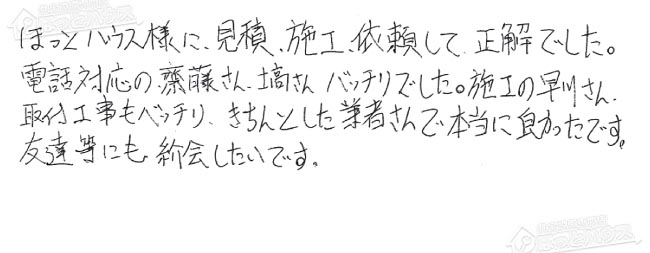 ほっとハウス様に、見積、施工、依頼して正解でした。
電話対応の齋藤さん、塙さん バッチリでした。施工の早川さん、
取付工事もバッチリ、きちんとした業者さんで本当に良かったです。
友達等にも紹会したいです。